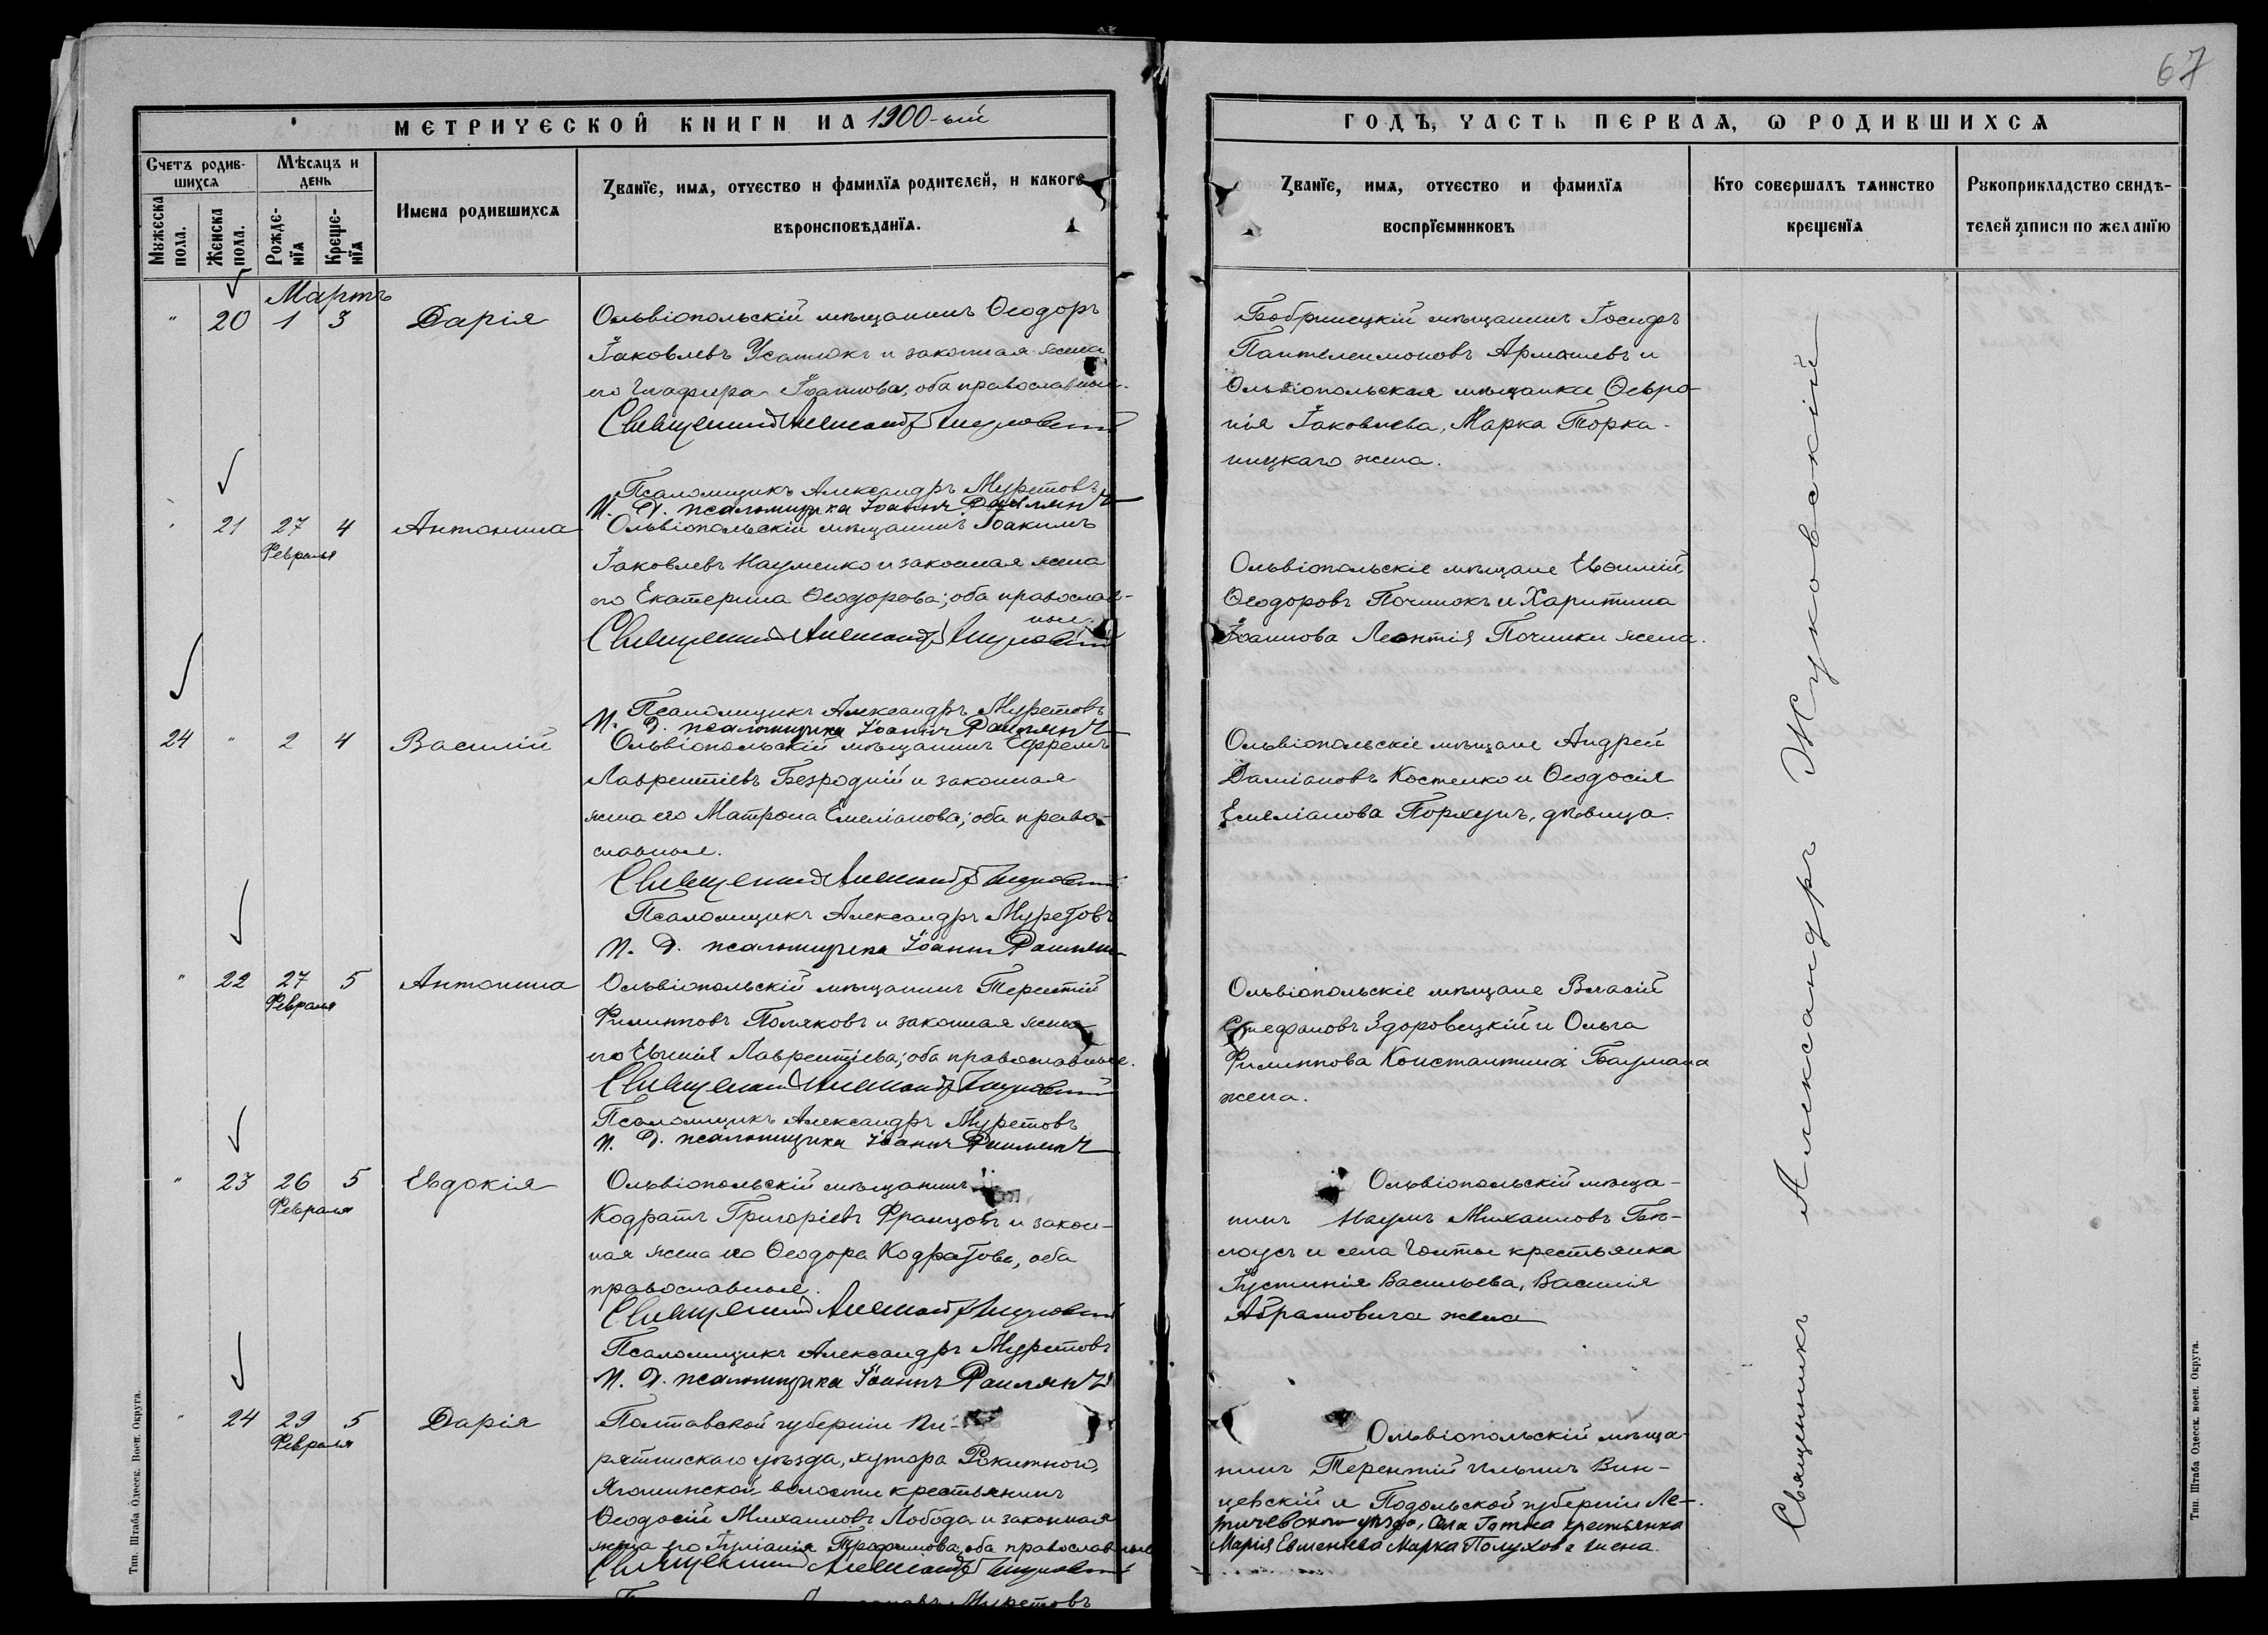 67
МЕТРИЧЕСКОЙ КНИГИ НА 1900-ый
ГОДЪ, ЧАСТЬ ПЕРВАѦ, Ѡ РОДИВШИХСѦ
Счетъ родив-
шихсѧ
Мѣсѧцъ и
день
Мужеска
пола.
Женска
пола.
Рожде-
нїѧ
Креще-
нїѧ
Имена родившихсѧ
Званїе, имѧ, отчество и фамилїѧ родителей, и какого
вѣроисповѣданїѧ.
Званїе, имѧ, отчество и фамилїѧ
воспрїемниковъ
Кто совершалъ таинство
крещенїѧ
Рукоприкладство свидѣ-
телей записи по желанїю
Мартъ
" 20 1 3 Дарія
Ольвіопольскій мѣщанинъ Ѳеодоръ
Іаковлевъ Усатюкъ и законная жена
его Глафира Іоаннова, оба православные.
Священникъ Александръ Жуковскій
Псаломщикъ Александръ Муретовъ
И. д. псаломщика Іоаннъ
Бобринецкій мѣщанинъ Іосифъ
Пантелеимоновъ Армашевъ и
Ольвіопольская мѣщанка Ѳевро-
нія Іаковлева, Марка Торка-
ницкаго жена.
" 21 27 4 Антонина
Февраля
Ольвіопольскій мѣщанинъ Іоакимъ
Іаковлевъ Науменко и законная жена
его Екатерина Ѳеодорова; оба православ-
ные.
Священникъ Александръ Жуковскій
Псаломщикъ Александръ Муретовъ
И. д. псаломщика Іоаннъ
Ольвіопольскіе мѣщане Евѳимій
Ѳеодоровъ Починокъ и Харитина
Іоаннова Леонтія Починки жена.
24 " 2 4 Василій
Ольвіопольскій мѣщанинъ Ефремъ
Лаврентіевъ Безродній и законная
жена его Матрона Емеліанова; оба право-
славные.
Священникъ Александръ Жуковскій
Псаломщикъ Александръ Муретовъ
И. д. псаломщика Іоаннъ
Ольвіопольскіе мѣщане Андрей
Даміановъ Костенко и Ѳеодосія
Емеліанова Порхунъ, дѣвица.
" 22 27 5 Антонина
Февраля
Ольвіопольскій мѣщанинъ Терентій
Филипповъ Поляковъ и законная жена
его Евгенія Лаврентіева; оба православные.
Священникъ Александръ Жуковскій
Псаломщикъ Александръ Муретовъ
И. д. псаломщика Іоаннъ
Ольвіопольскіе мѣщане Власій
Стефановъ Здоровецкій и Ольга
Филиппова Константина Баумана
жена.
" 23 26 5 Евдокія
Февраля
Ольвіопольскій мѣщанинъ
Кодратъ Григоріевъ Францовъ и закон-
ная жена его Ѳеодора Кодратова, оба
православные.
Священникъ Александръ Жуковскій
Псаломщикъ Александръ Муретовъ
И. д. псаломщика Іоаннъ
Ольвіопольскій мѣща-
нинъ Наумъ Михаиловъ Бѣ-
лоусъ и села Голты крестьянка
Іустинія Васильева, Василія
Абрамовича жена
" 24 29 5 Дарія
Февраля
Полтавской губерніи Пи-
рятинскаго уѣзда, хутора Рокитного,
Яготинской волости крестьянинъ
Ѳеодосій Михаиловъ Лобода и законная
жена его Іуліанія Трофимова, оба православные
Священникъ Александръ Жуковскій
Муретовъ
Ольвіопольскій мѣща-
нинъ Терентій Ильинъ Вин-
цевскій и Подольской губерніи Ле-
тичевскаго уѣзда, села крестьянка
Марія Марка Полухова жена.
Священникъ Александръ Жуковскій
Тип. Штаба Одесск. Воен. Округа.
Тип. Штаба Одесск. воен. Округа.